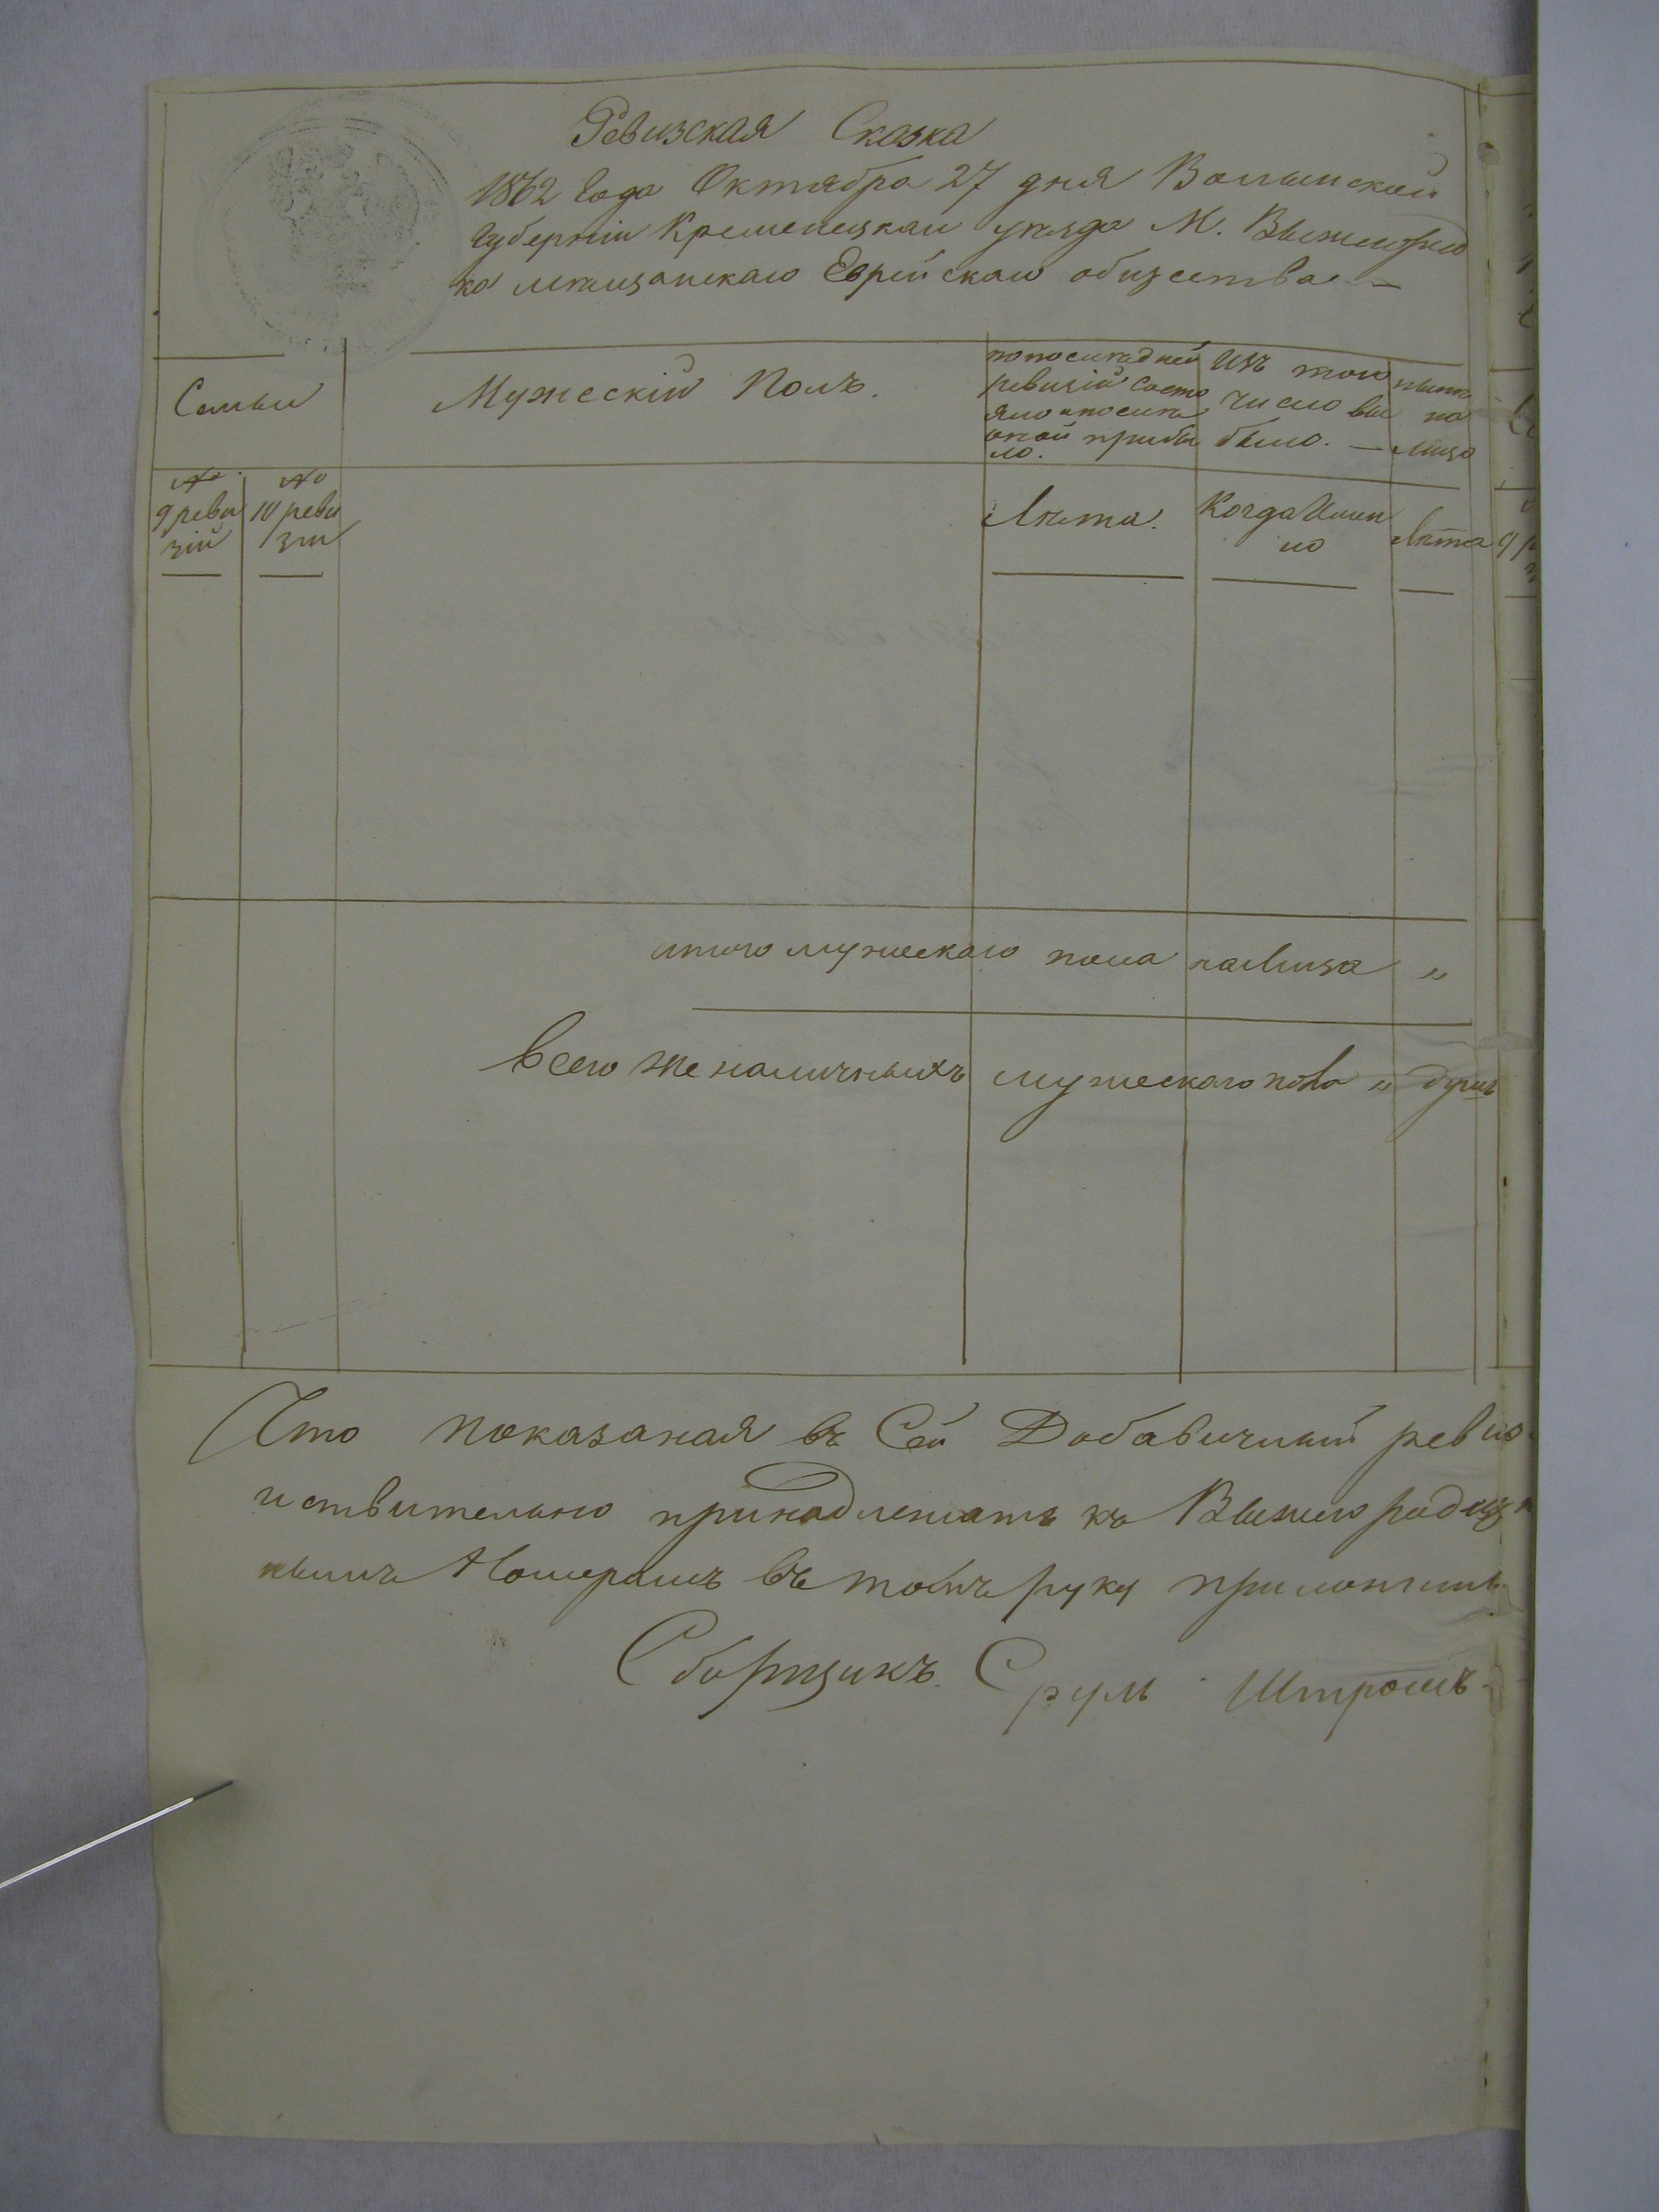 Ревизская Сказка
1862 Года Октября 27 дня Волынской
Губернии Кременецкаи уѣзда М. Вышгород
ка мѣщанскаго Еврейскаго общества —
Семьи
Мужескій Полъ.
попослѣдней
ревизіи состо
яло и послѣ
оной прибы
ло.
Изъ того
число вы
было. —
нынѣ
на
лицо
№
9 реви
зій
№
10 реви
зіи
Лѣта.
Когда Имен
но
Лѣта
итого мужескаго пола налицо "
Всего же наличныхъ мужескаго пола " душъ
Что показаная въ Сей Добавичный реви
иствительно принадлежатъ къ Вышгородц
нымъ Номерамъ въ томъ руку приложилъ
Сборщикъ. Сруль Штромъ